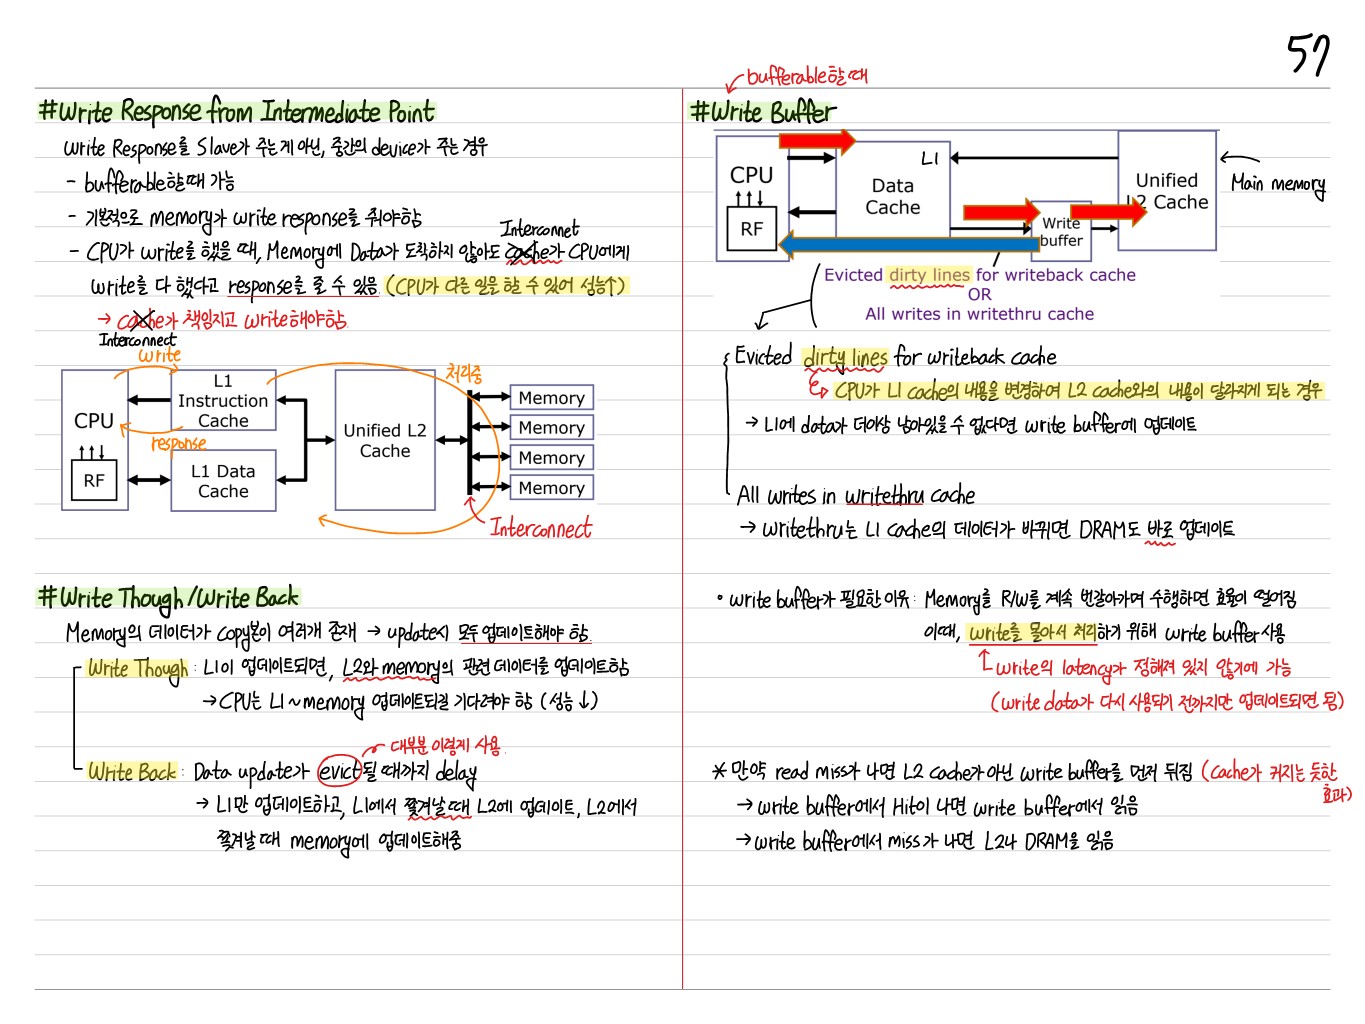 57
#Write Response from Intermediate Point
Write Response를 Slave가 주는게 아닌, 중간의 device가 주는 경우
- bufferable할때 가능
- 기본적으로 memory가 write response를 줘야함
Interconnet
- CPU가 write를 했을 때, Memory에 Data가 도착하지 않아도 cache가 CPU에게
write를 다 했다고 response를 줄 수 있음 (CPU가 다른 일을 할 수 있어 성능↑)
→ cache가 책임지고 write해야함
Interconnect
write
처리중
CPU
RF
L1
Instruction
Cache
response
L1 Data
Cache
Unified L2
Cache
Memory
Memory
Memory
Memory
Interconnect
#Write Though/Write Back
Memory의 데이터가 copy본이 여러개 존재 → update시 모두 업데이트해야 함
Write Though : L1이 업데이트되면, L2와 memory의 관련 데이터를 업데이트함
→ CPU는 L1~memory 업데이트되길 기다려야 함 (성능↓)
대부분 이렇게 사용
Write Back : Data update가 evict될 때까지 delay
→ L1만 업데이트하고, L1에서 쫓겨날 때 L2에 업데이트, L2에서
쫓겨날 때 memory에 업데이트해줌
bufferable할때
#Write Buffer
CPU
RF
L1
Data
Cache
Write
buffer
Unified
L2 Cache
Main memory
Evicted dirty lines for writeback cache
OR
All writes in writethru cache
Evicted dirty lines for writeback cache
CPU가 L1 cache의 내용을 변경하여 L2 cache와의 내용이 달라지게 되는 경우
→ L1에 data가 더이상 남아있을 수 없다면 write buffer에 업데이트
All writes in writethru cache
→ writethru는 L1 cache의 데이터가 바뀌면 DRAM도 바로 업데이트
• write buffer가 필요한 이유 : Memory를 R/W를 계속 번갈아가며 수행하면 효율이 떨어짐
이때, write를 몰아서 처리하기 위해 write buffer 사용
write의 latency가 정해져 있지 않기에 가능
(write data가 다시 사용되기 전까지만 업데이트되면 됨)
* 만약 read miss가 나면 L2 cache가 아닌 write buffer를 먼저 뒤짐 (cache가 커지는 듯한
효과)
→ write buffer에서 Hit이 나면 write buffer에서 읽음
→ write buffer에서 miss가 나면 L2나 DRAM을 읽음